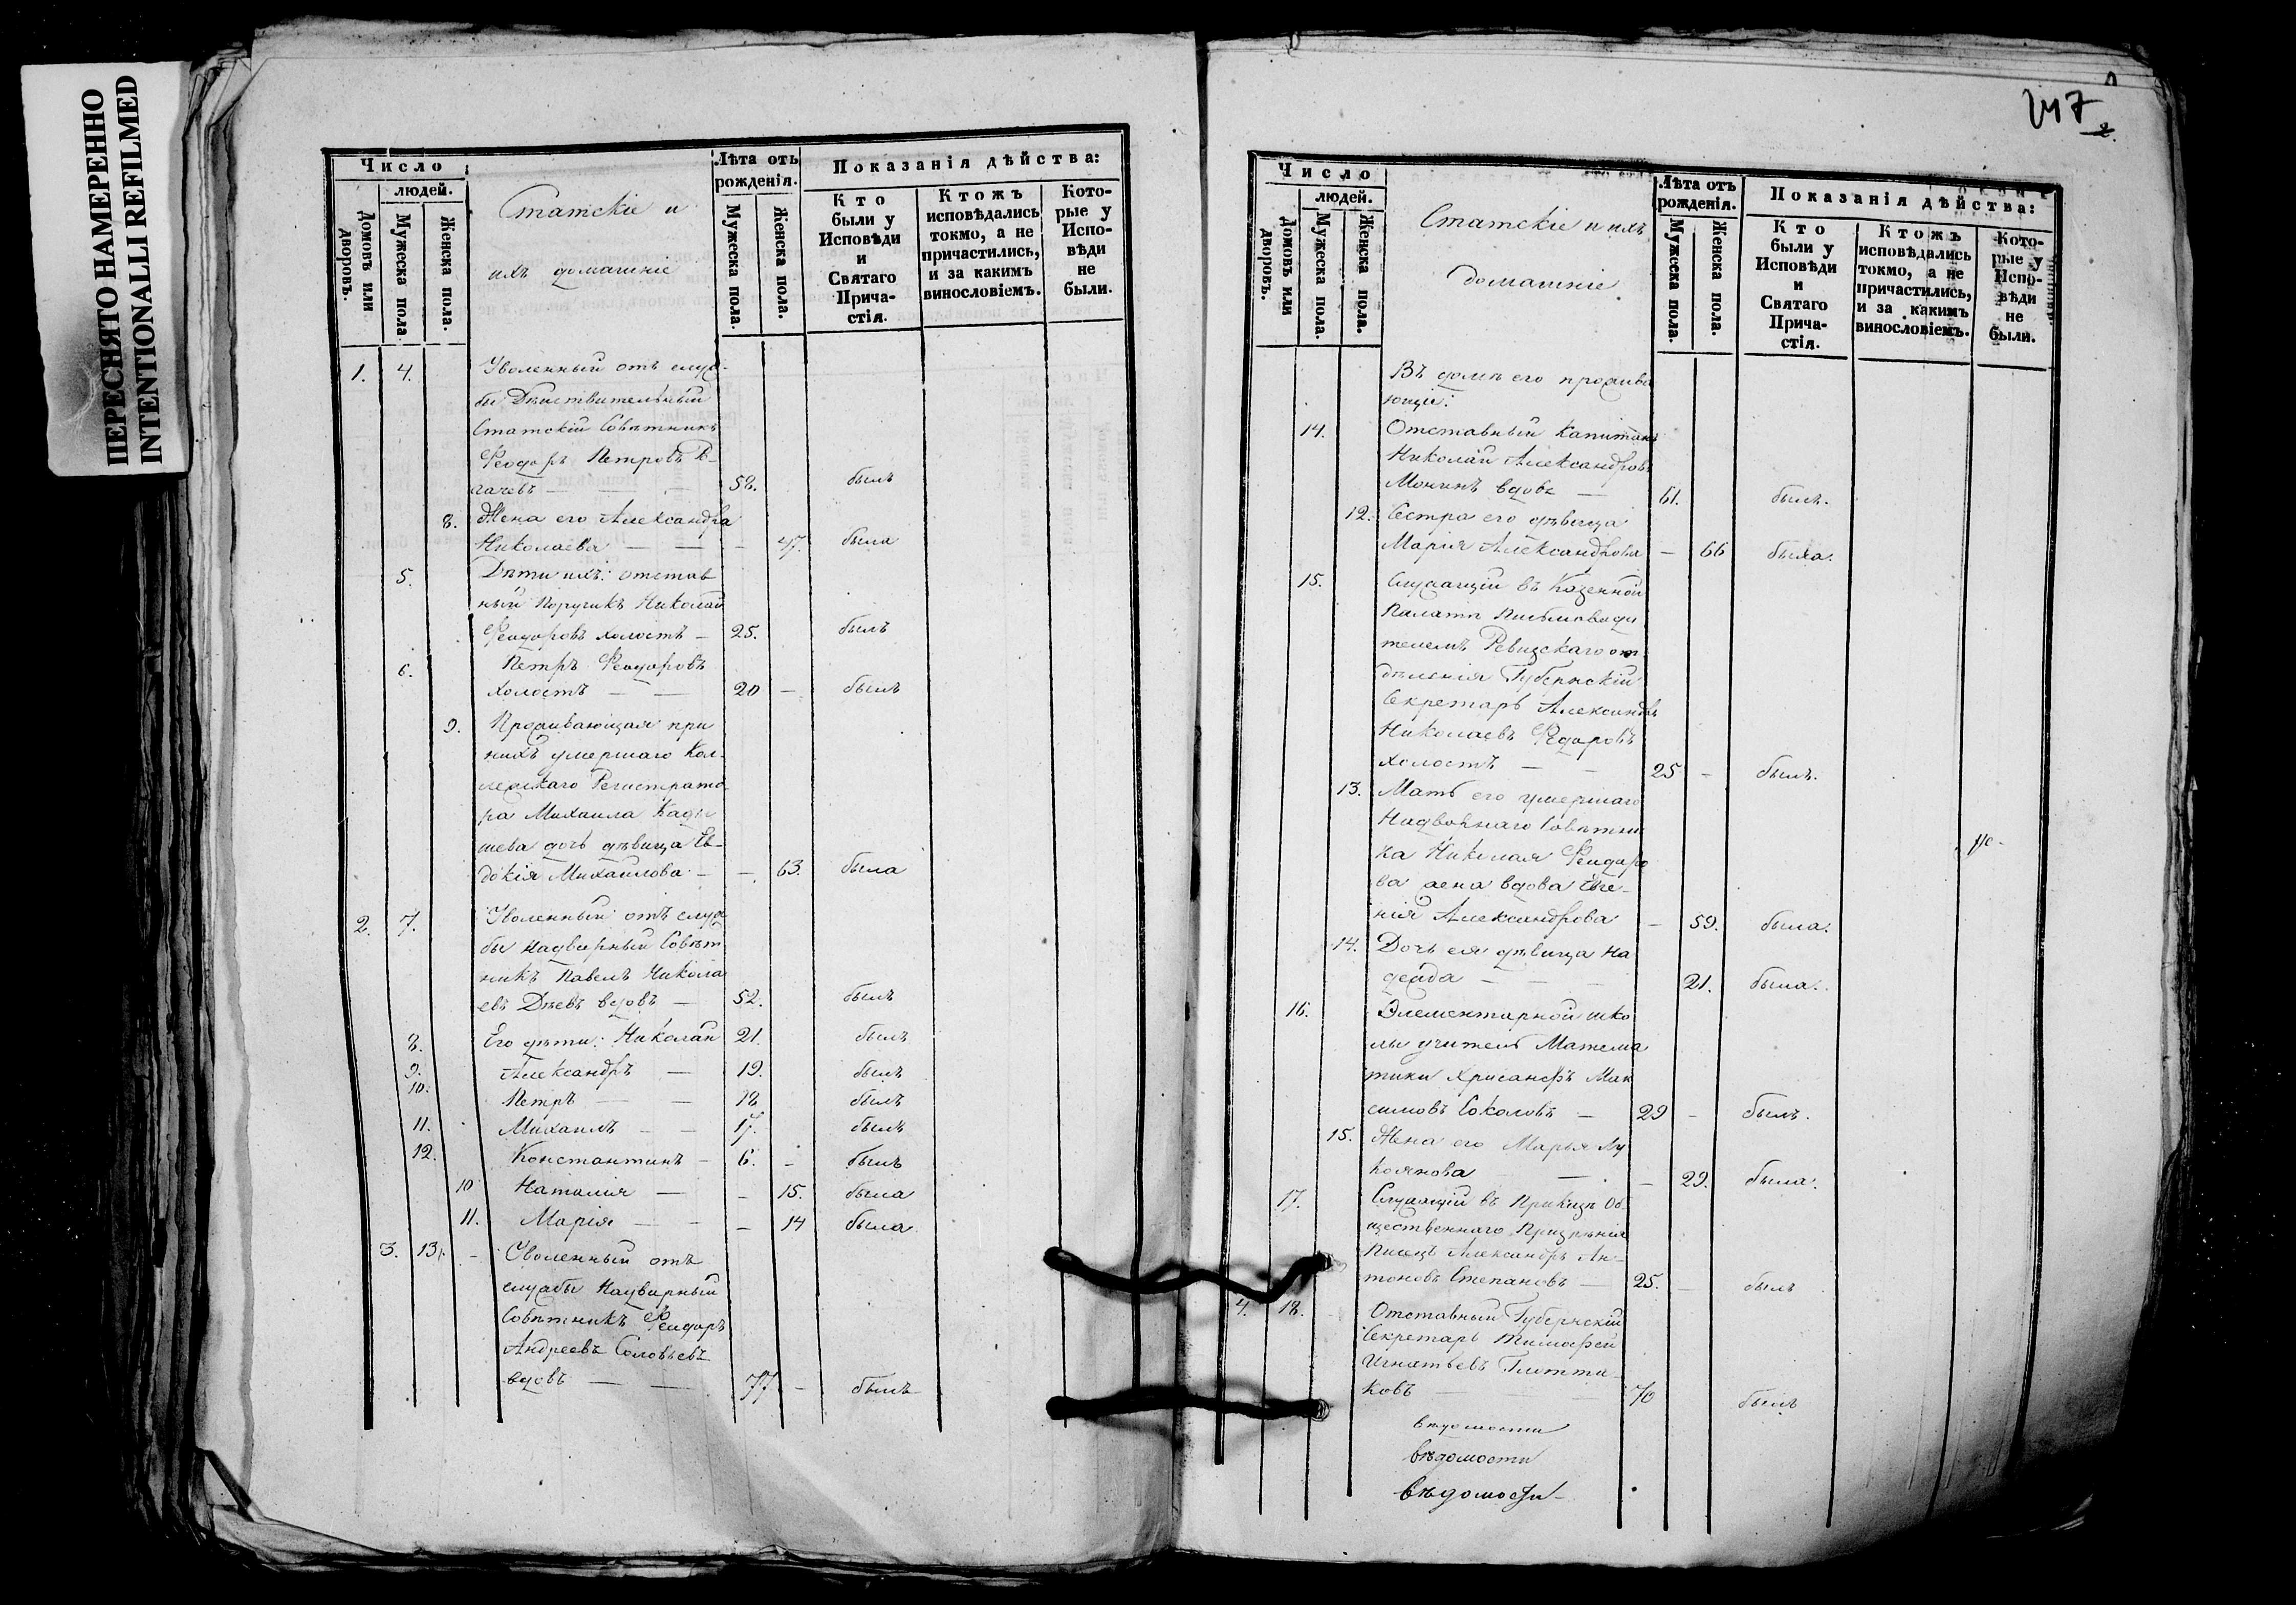 ПЕРЕСНЯТО НАМЕРЕННО
INTENTIONALLI REFILMED
Число
людей.
Домовъ или дворовъ.
Мужеска пола
Женска пола.
Статскіе и
ихъ домашніе
Лѣта отъ рожденія.
Мужеска пола.
Женска пола.
Показанія дѣйства:
Кто были у Исповѣди и Святаго Прича-стія.
Ктожъ исповѣдались токмо, а не причастились, и за какимъ винословіемъ.
Кото-рые у Испо-вѣди не были.
1. 4. Уволенный отъ служ-
бы Дѣйствительный
Статскій Совѣтникъ
Феодоръ Петровъ
58. былъ
8. Жена его Александра
Николаева — — — 47. была
5. Дѣти ихъ: отстав
ный Поручикъ Николай
Феодоровъ холостъ — 25. былъ
6. Петръ Феодоровъ
холостъ — — 20 — былъ
9. Проживающая при
нихъ умершаго Кол-
лежскаго Регистрато
ра Михаила
шева дочь дѣвица Ев-
докія Михайлова — — 63. была
2. 7. Уволенный отъ служ
бы Надворный Совѣт
никъ Павелъ Никола
евъ Дѣевъ вдовъ — 52. былъ
8. Его дѣти: Николай 21. былъ
9. Александръ — 19. былъ
10. Петръ — — 18 былъ
11. Михаилъ — — 17. былъ
12. Константинъ — 6. — былъ
10 Наталія — — 15. была
11. Марія — — — 14 была
3. 13. — Уволенный отъ
службы Надворный
Совѣтникъ Феодоръ
Андреевъ Соловьевъ
вдовъ — — 77 — былъ
Число
людей.
Домовъ или дворовъ.
Мужеска пола.
Женска пола.
Статскіе и ихъ
домашніе
Лѣта отъ рожденія.
Мужеска пола.
Женска пола.
Показанія дѣйства:
Кто были у Исповѣди и Святаго Прича-стія.
Ктожъ исповѣдались токмо, а не причастились, и за какимъ винословіемъ.
Кото-рые у Испо-вѣди не были.
Въ домѣ его прожива
ющіе:
14. Отставный Капитанъ
Николай Александровъ
вдовъ — 61. былъ.
12. Сестра его дѣвица
Марія Александрова — 66 была.
15. Служащій въ Казенной
Палатѣ Письмоводи
телемъ Ревизскаго от
дѣленія Губернскій
Секретарь Александръ
Николаевъ Федоровъ
холостъ — — 25 — былъ.
13. Мать его умершаго
Надворнаго Совѣтни
ка Николая Феодоро
ва жена вдова Евге-
нія Александрова — 59. была.
14. Дочь ея дѣвица На
дежда — — — 21. была.
16. Элементарной шко
лы учитель Матема
тики Хрисанфъ Мак
симовъ Соколовъ — 29 — былъ.
15. Жена его Марья Лу
коянова — — 29. была.
17. Служащій въ Приказѣ Об-
щественнаго Призрѣнія
Писецъ Александръ Ан-
тоновъ Степановъ — 25. — былъ
4. 18. Отставный Губернскій
Секретарь Тимофей
Игнатьевъ
ковъ 70 былъ
вѣдомости
вѣдомости
вѣдомости